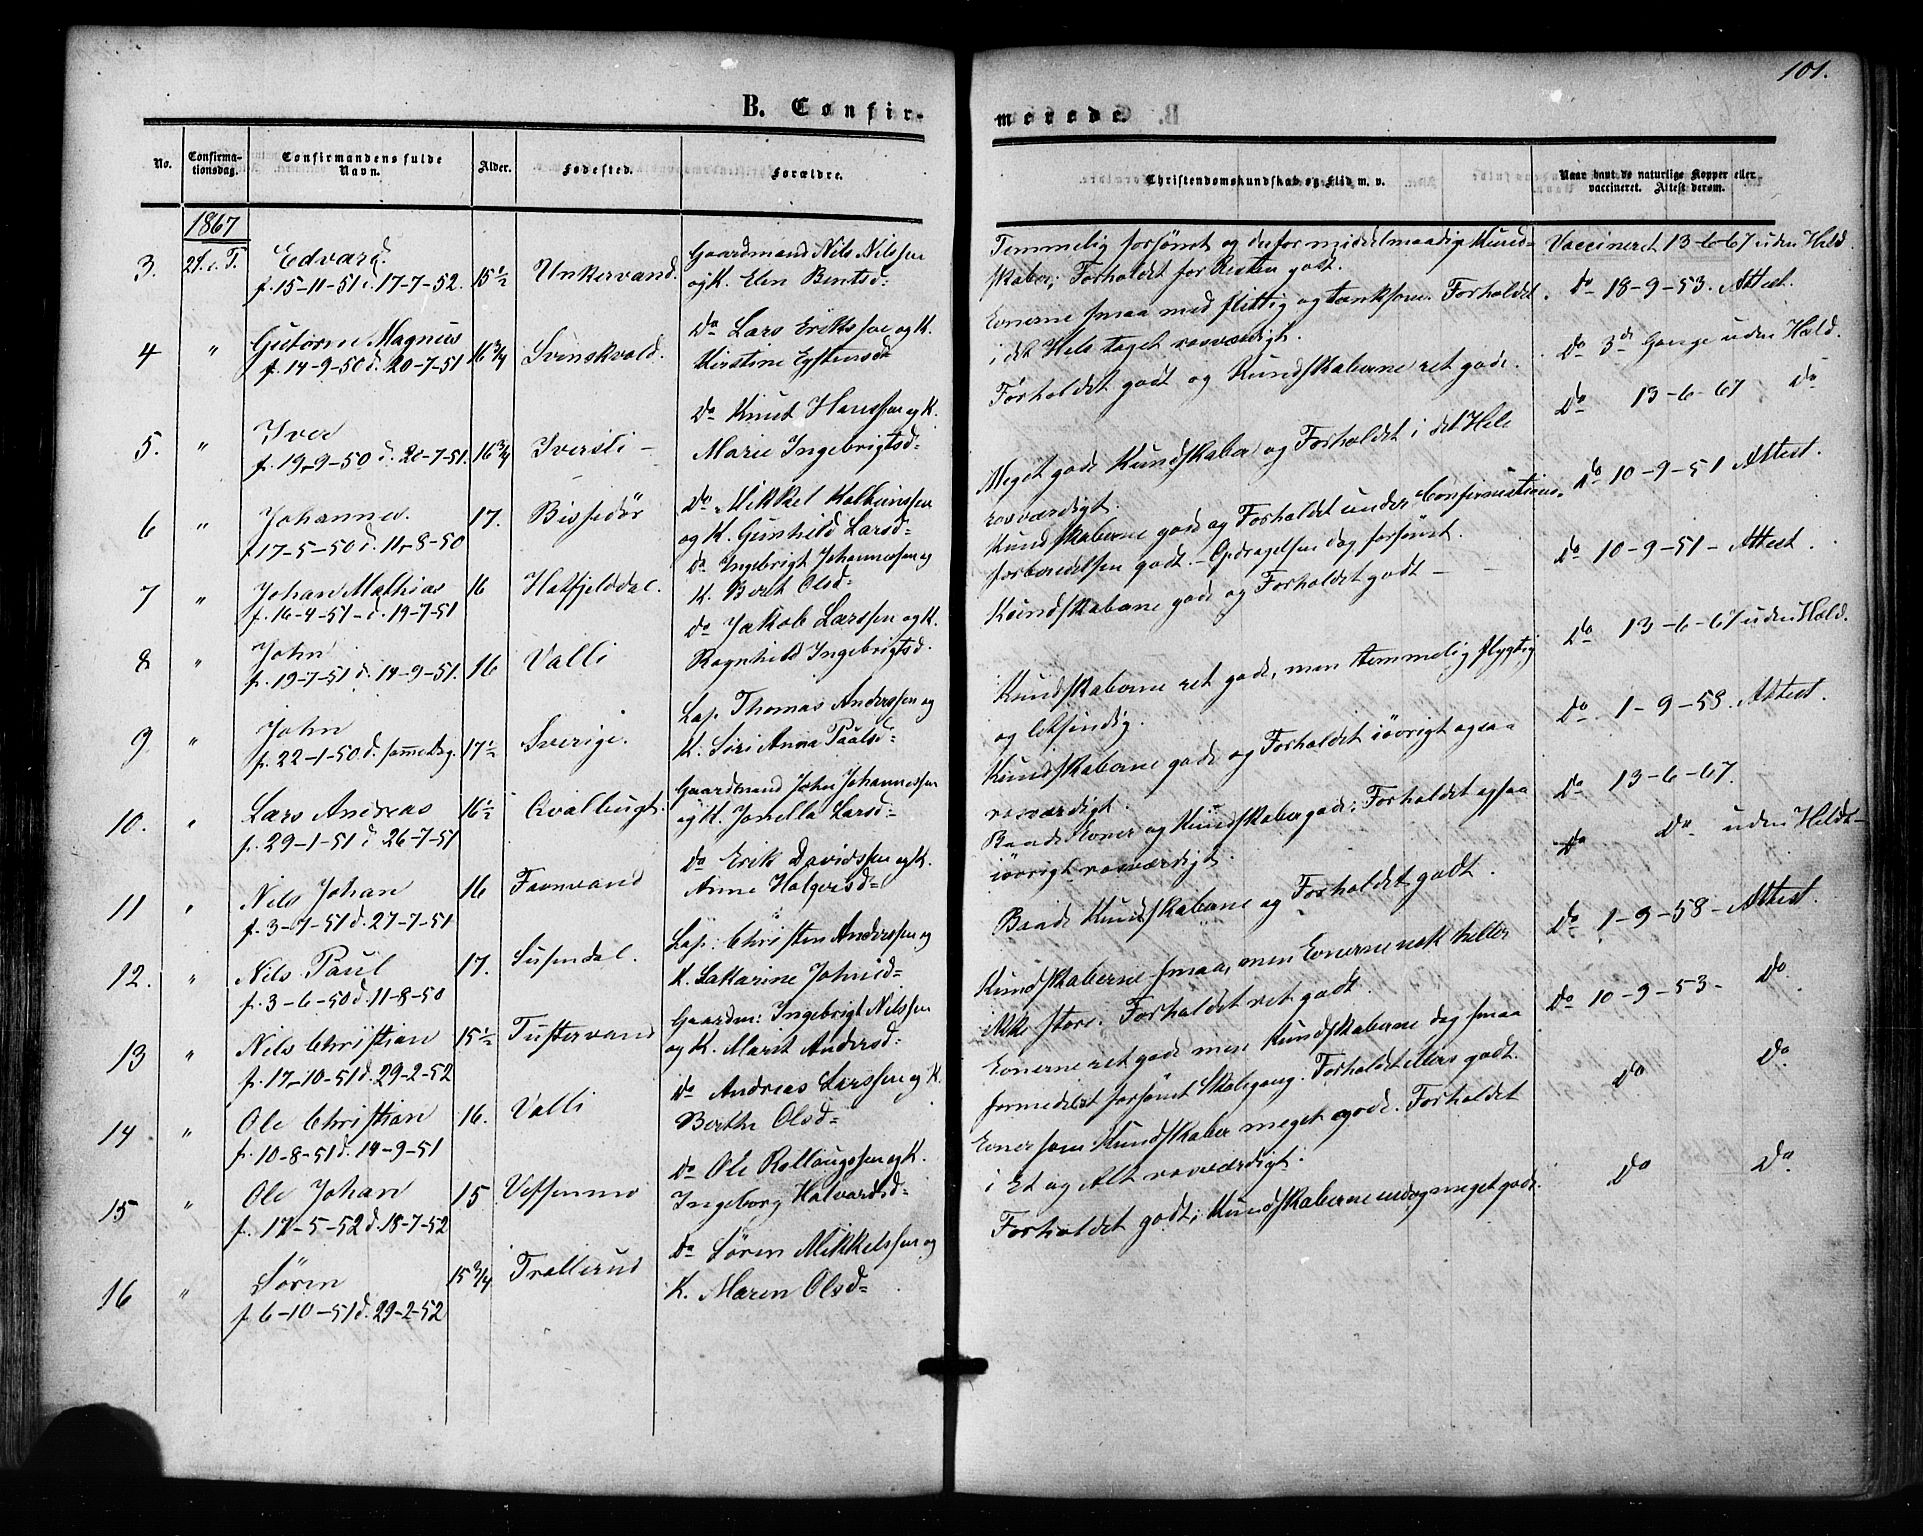 101.
B. Confir-
merede.
No.
Confirma-
tionsdag.
Confirmandens fulde
Navn.
Alder.
Fødested.
Forældre.
Christendomskundskab og Flid m. v.
Naar havt de naturlige Kopper eller
vaccineret. Attest derom.
1867
3. 2 S. e. T. Edvard. 15½ Unkervand. Gaardmand Nils Nilssen
f. 15-11-51 d. 17-7-52. og K. Elen Bentsd=
Temmelig forsömt og derfor middelmaadige Kund-
skaber; Forholdet for Resten godt.
Vaccineret 13-6-67 uden Held.
4 " Gutorm Magnus 16¾ Svenskvold. Do Lars Erikssen og K.
f. 14-9-50 d. 20-7-51 Kirstine Egstensd=
Evnerne smaa med flittig og tænksom. Forholdet
i det Hele taget rosværdigt.
Do 18-9-53. Attest.
5. " Iver 16¾ Iversli - Do Knut Hanssen og K.
f. 19-9-50 d. 20-7-51. Marie Ingebrigtsd=
Forholdet godt og Kundskaberne ret gode.
Do 3de Gange uden Held.
6 " Johannes. 17. Bissedør Do Mikkel
f. 17-5-50 d. 11-8-50 og K. Gunhild Larsd=
Meget gode Kundskaber og Forholdet i det Hele
rosværdigt.
Do 13-6-67 Do
7 " Johan Mathias 16 Hatfjelddal. Do Ingebrigt Johannessen og
f. 16-4-51 - d. 19-7-51 K. Berit Olsd=
Kundskaberne gode og Forholdet under Confirmations-
forberedelsen godt. - Opdragelsen dog forsömt.
Do 10-9-51 Attest.
8 " John 16 Valli Do Jakob Larssen og K.
f. 19-7-51 d. 14-9-51. Ragnhild Ingebrigtsd.
Kundskaberne gode og Forholdet godt - -
Do 10-9-51 - Attest.
9 " John 17½ Sverige. Lap. Thomas Anderssen og
f. 22-1-50 d. samme Dag. K. Siri Anna Paalsd=
Kundskaberne ret gode, men temmelig flygtig
og letsindig.
Do 13-6-67 uden Held.
10. " Lars Andreas 16½ Qvalbugt. Gaardmand John Johannessen
f. 29-1-51 d. 26-7-51 og K. Jonella Larsd=
Kundskaberne gode og Forholdet iövrigt ogsaa
rosværdigt.
Do 1-9-58. Attest.
11 " Nils Johan 16 Famvand Do Erik Davidssen og K.
f. 3-7-51 d. 27-7-51 Anne Holgersd=
Baade Evner og Kundskaber gode: Forholdet ogsaa
iövrigt rosværdigt.
Do 13-6-67.
12. " Nils Paul 17. Susendal. Lap: Christen Anderssen og
f. 3-6-50 d. 11-8-50 K. Johnsd=
Baade Kundskaberne og Forholdet godt.
Do Do uden Held-
13 " Nils Christian 15½ Tustervand Gaardm: Ingebrigt Nilssen
f. 17-10-51 d. 29-2-52 og K. Marit Andersd=
Kundskaberne smaa, men Evnerne nok heller
ikke store. Forholdet ret godt.
Do 1-9-58 - Attest.
14 " Ole Christian 16. Valli Do Andreas Larssen og K.
f. 10-8-51 d. 14-9-51 Berthe Olsd=
Evnerne ret gode men Kundskaberne dog smaa
formedelst forsömt Skolegang. Forholdet ellers godt.
Do 10-9-53 - Do
15 " Ole Johan 15 Vefsenmo Do Ole og K.
f. 17-5-52 d. 18-7-52 Ingeborg Halvardsd=
Evner som Kundskaber meget gode. Forholdet
i Et og Alt rosværdigt.
Do Do
16 " Sören 15¾ Trollerud Do Sören Mikkelssen og
f. 6-10-51 d. 29-2-52 K. Maren Olsd=
Forholdet godt; Kundskaberne endog meget gode.
Do Do